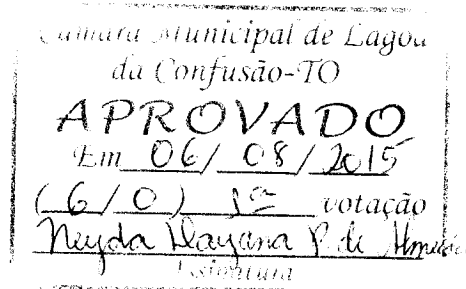 Câmara Municipal de Lagoa
da Confusão-TO
APROVADO
Em 06/ 08/ 2015
( 6 / 0 ) 1ª votação
Neyda Dayana P. de Almeida
Assinatura